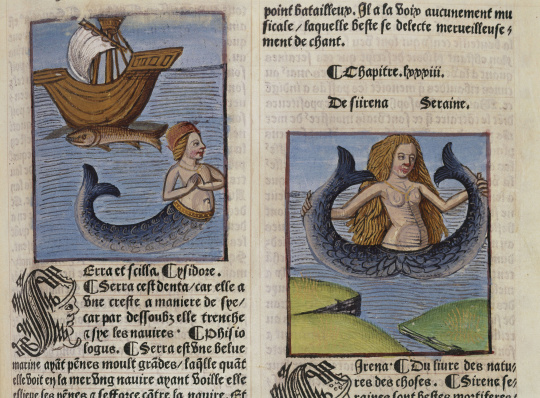 Erra et scilla. Cysidore.
¶Serra cest denta/car elle a
vne creste a maniere de sye/
car par dessoubz elle trenche
⁊ sye les nauires. ¶Phisio
logus. ¶Serra est vne belue
marine ayãt pẽnes moult grãdes/laq̃lle quãt
elle voit en la mer vng nauire ayant voille elle
esliefue ses pẽnes ⁊ sefforce cõtre la nauire. Et
point batailleux. Il a la voix aucunement mu
sicale/laquelle beste se delecte merueilleuse⸗
ment de chant.
¶Chapitre.lxxxiii.
De siirena Seraine.
Irena. ¶Du liure des natu⸗
res des choses. ¶Sirene se⸗
raines sont bestes mortiferes